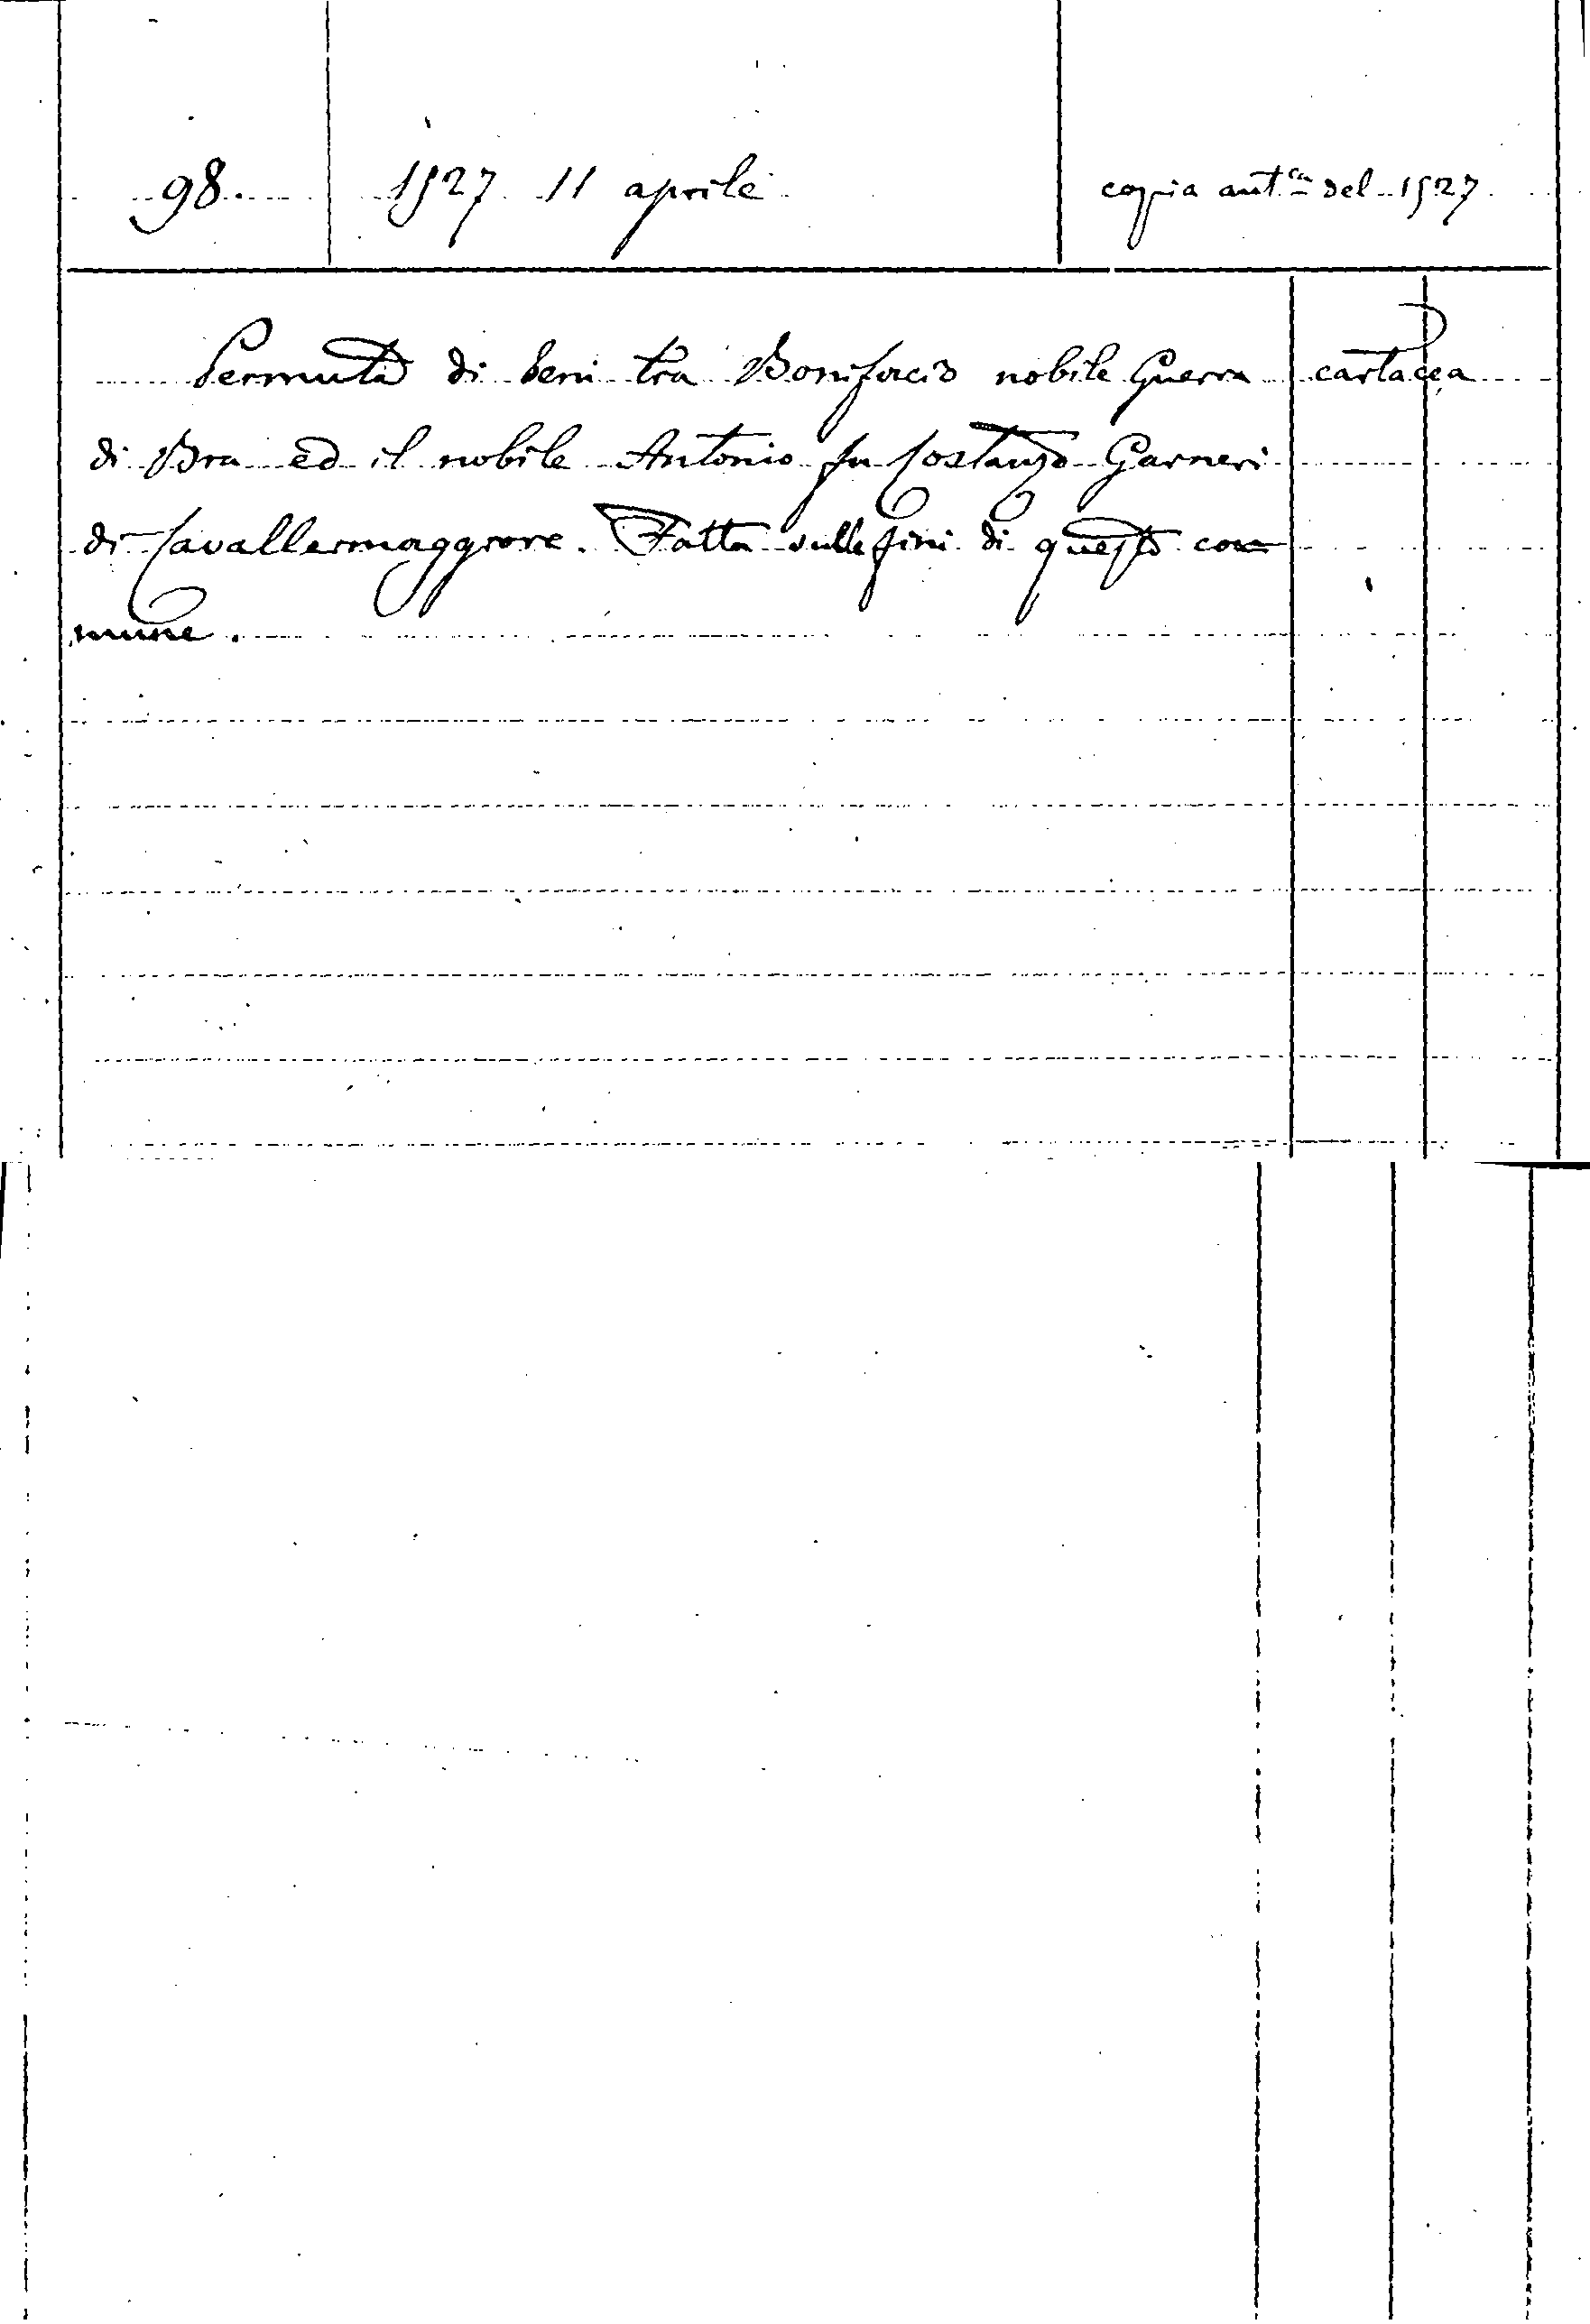 98. 1527 11 aprile copia aut.ca del 1527
Permuta di beni tra Bonifacio nobile Guerra cartacea
di Bra ed il nobile Antonio fu Costanzo Garneri
di Cavallermaggiore. Fatta sulle fini di questo com
mune.